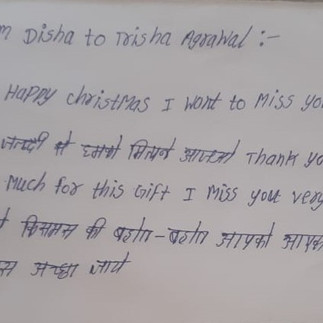 m Disha to Trisha Agrawal :-
Happy christmas I want to Miss you
जल्दी से हमसे मिलने आजाओ Thank yo
Much for this Gift I Miss you very
क्रिसमस की बहोत-बहोत आपको आपक
स अच्छा जाये